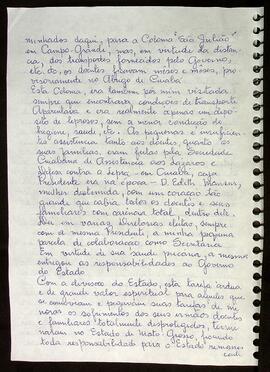 minhados daqui, para a Colonia "São Julião"
em Campo Grande, mas, em virtude da distan-
cia, dos transportes fornecidos pelo Governo,
etc. etc. os doentes ficavam mêses e mêses, pro-
visoriamente no Abrigo de Cuiabá.
Esta Colonia, era tambem por mim visitada
sempre que encontrava condições de transporte
Aparentava e era realmente apenas um deposi-
to de leprosos, sem a menor condição de
higiene, saude, etc. As pequenas e insuficien-
tes assistencia tanto aos doentes quanto às
suas familias, eram feitas pela Sociedade
Cuiabana de Assistencia aos Lazaros e
Defesa contra a Lepra - em Cuiabá, cuja
Presidente era na época - D. Edith
mulher destemida, com um coração tão
grande que cabia todos os doentes e seus
familiares com carinho total, dentro dele.
Por em varias, Diretorias eleitas, sempre
com a mesma Presidente, a minha pequena
parcela de colaboração como Secretaria
Em virtude de sua saude precaria, a mesma
entregou as responsabilidades ao Governo
do Estado
Com a divisão do Estado, esta tarefa ardua
e de grande valor espiritual para aqueles que
os socorriam e pequenas suas tarefas de mi-
norar os sofrimentos dos seus irmãos doentes
e familiares totalmente desprotegidos, termi-
naram no Estado de Mato-Grosso, passando
toda responsabilidade para o Estado remanes-
cente